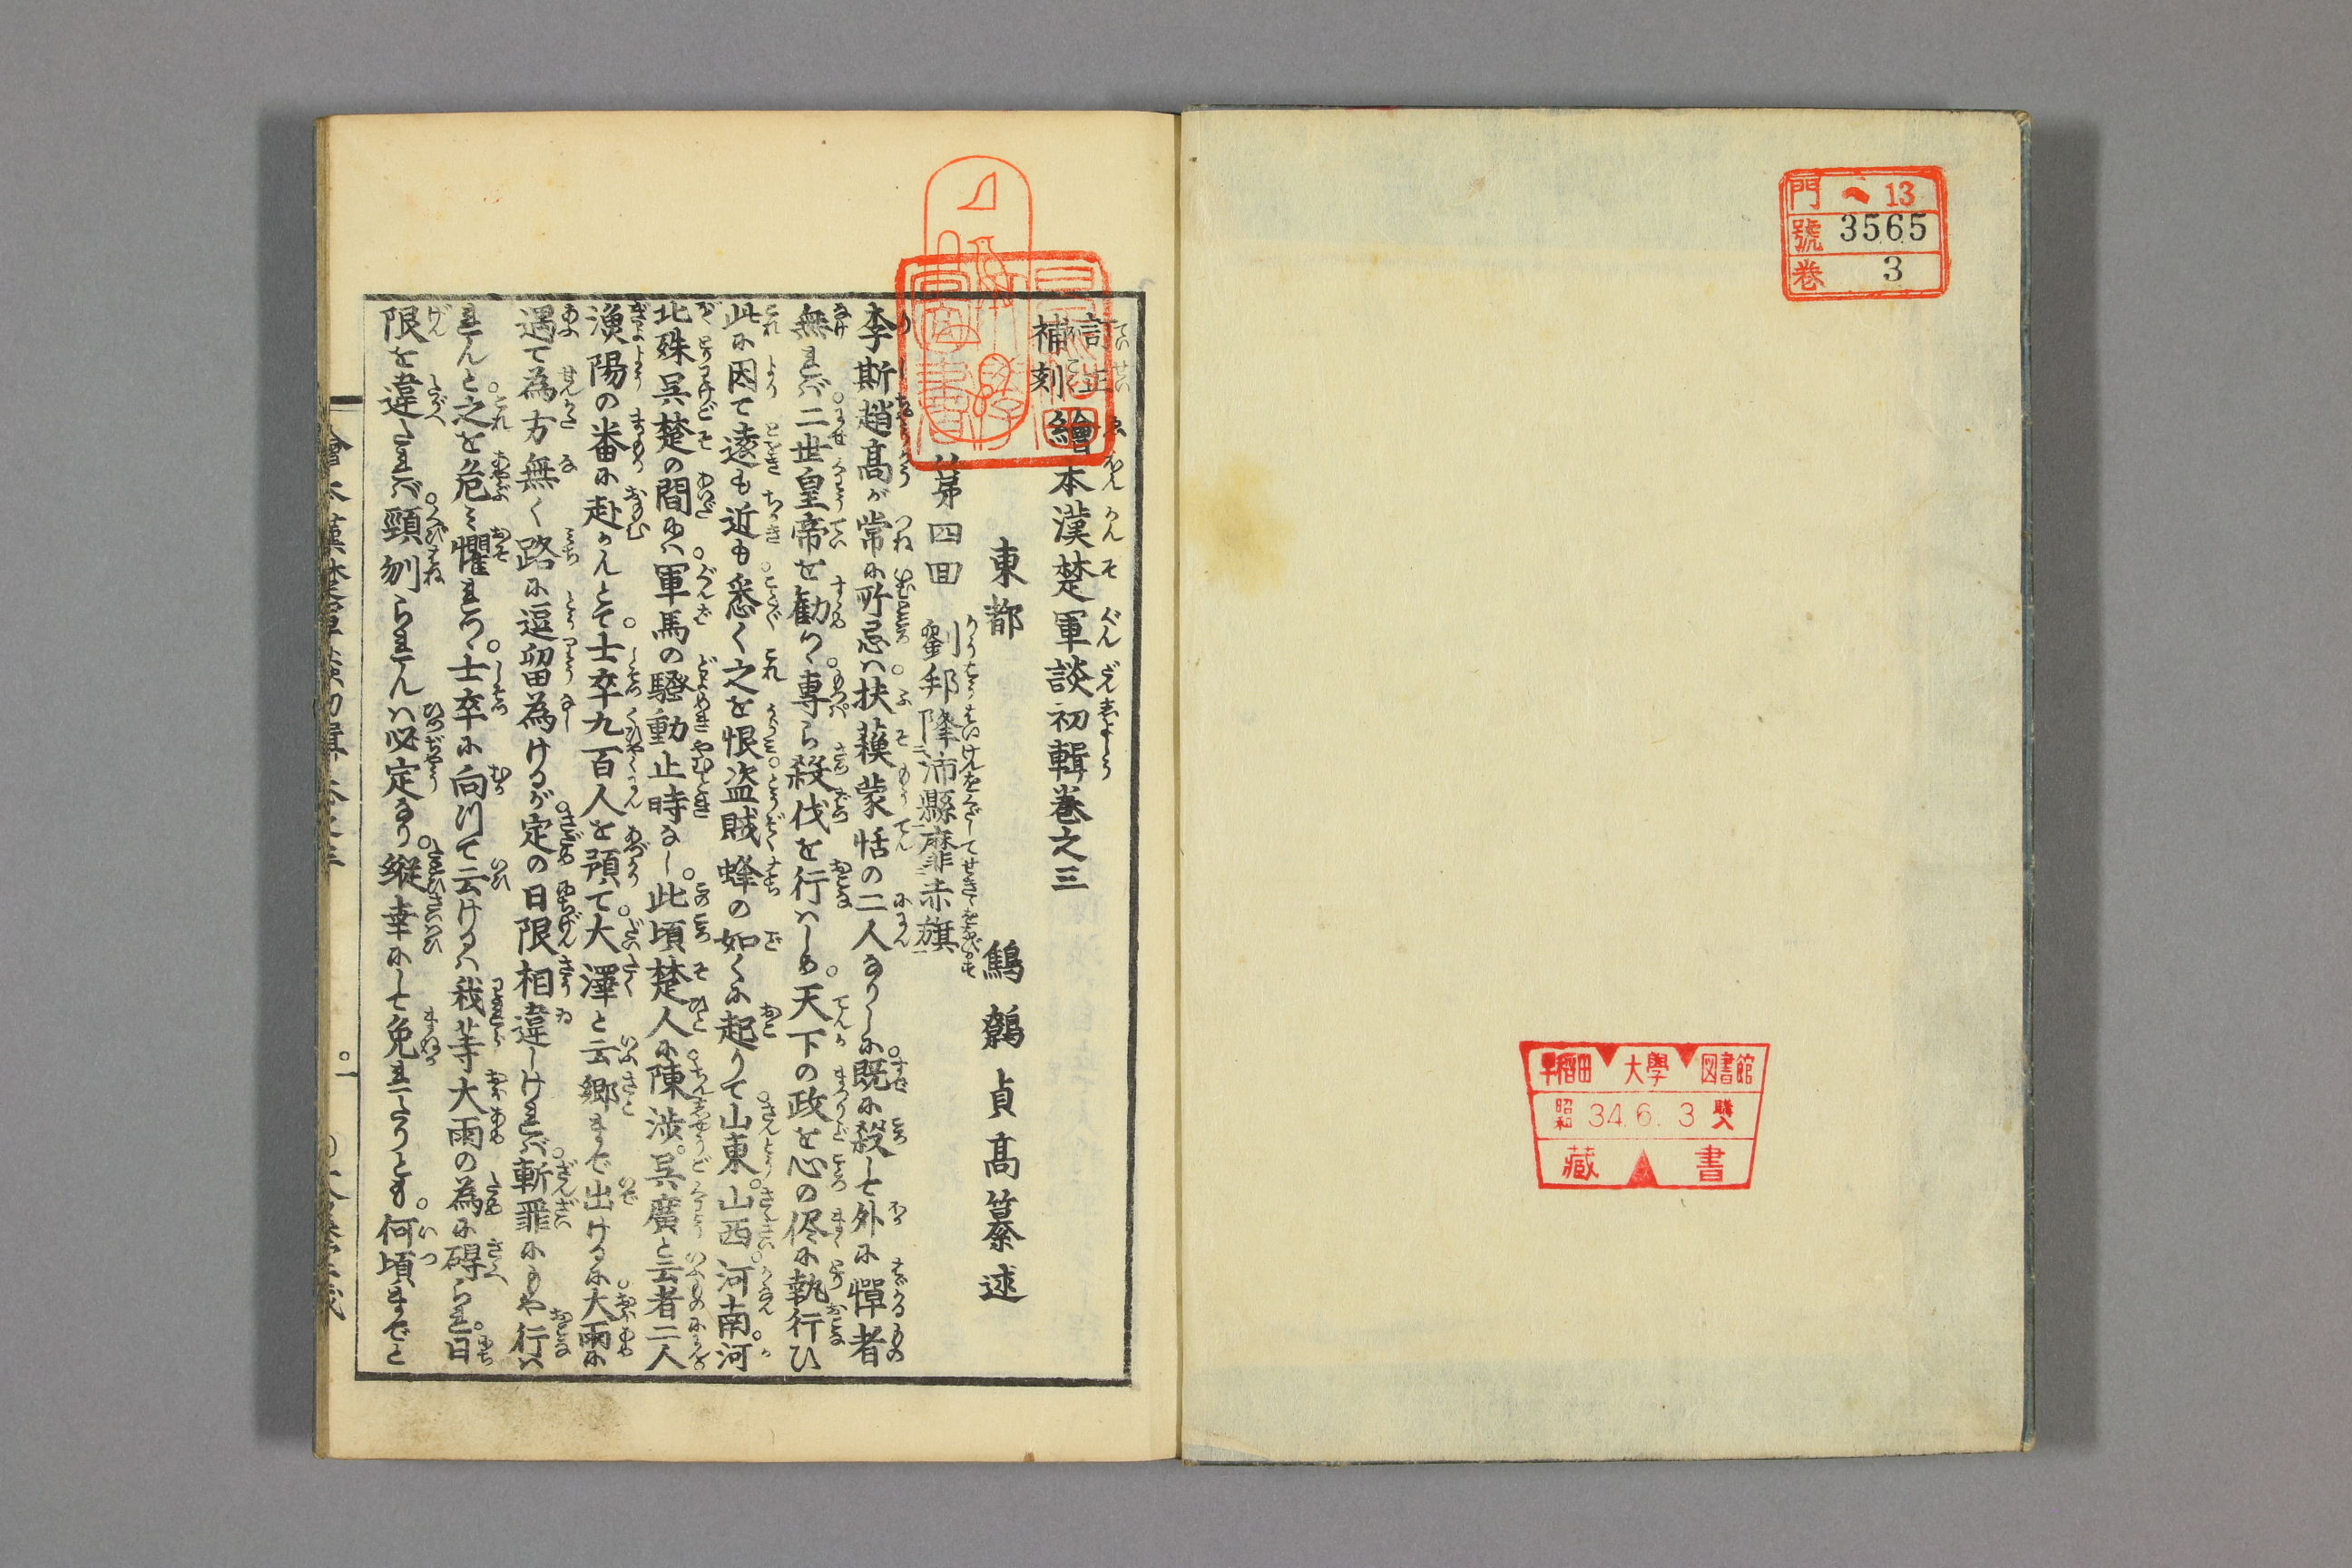 門 へ 13
號 3565
卷 3
早稲田 大學 図書館
昭和 34.6.3 購入
藏書
訂正補刻繪本漢楚軍談初輯巻之三
東都 鷦鷯貞髙纂述
第四回 劉邦降沛縣麾赤旗
李斯趙髙が常に所忌は扶蘓蒙恬の二人なりしに既に殺して外に憚者
無れば二世皇帝を勧め専ら殺伐を行はしめ天下の政を心の侭に執行ひ
此に因て遠も近も悉く之を恨盗賊蜂の如くに起りて山東山西河南河
北殊呉楚の間には軍馬の騒動止時なし此頃楚人に陳渉呉廣と云者二人
漁陽の番に赴かんとて士卒九百人を預て大澤と云郷まで出けるに大雨に
遇て為方無く路に逗畄為けるが定の日限相違しければ斬罪にもや行は
れんと之を危み懼れつゝ士卒に向川て云けるは我等大雨の為に碍られ日
限を違たれば頸刎られんは必定なり縦幸にして免れたりとも何頃までと